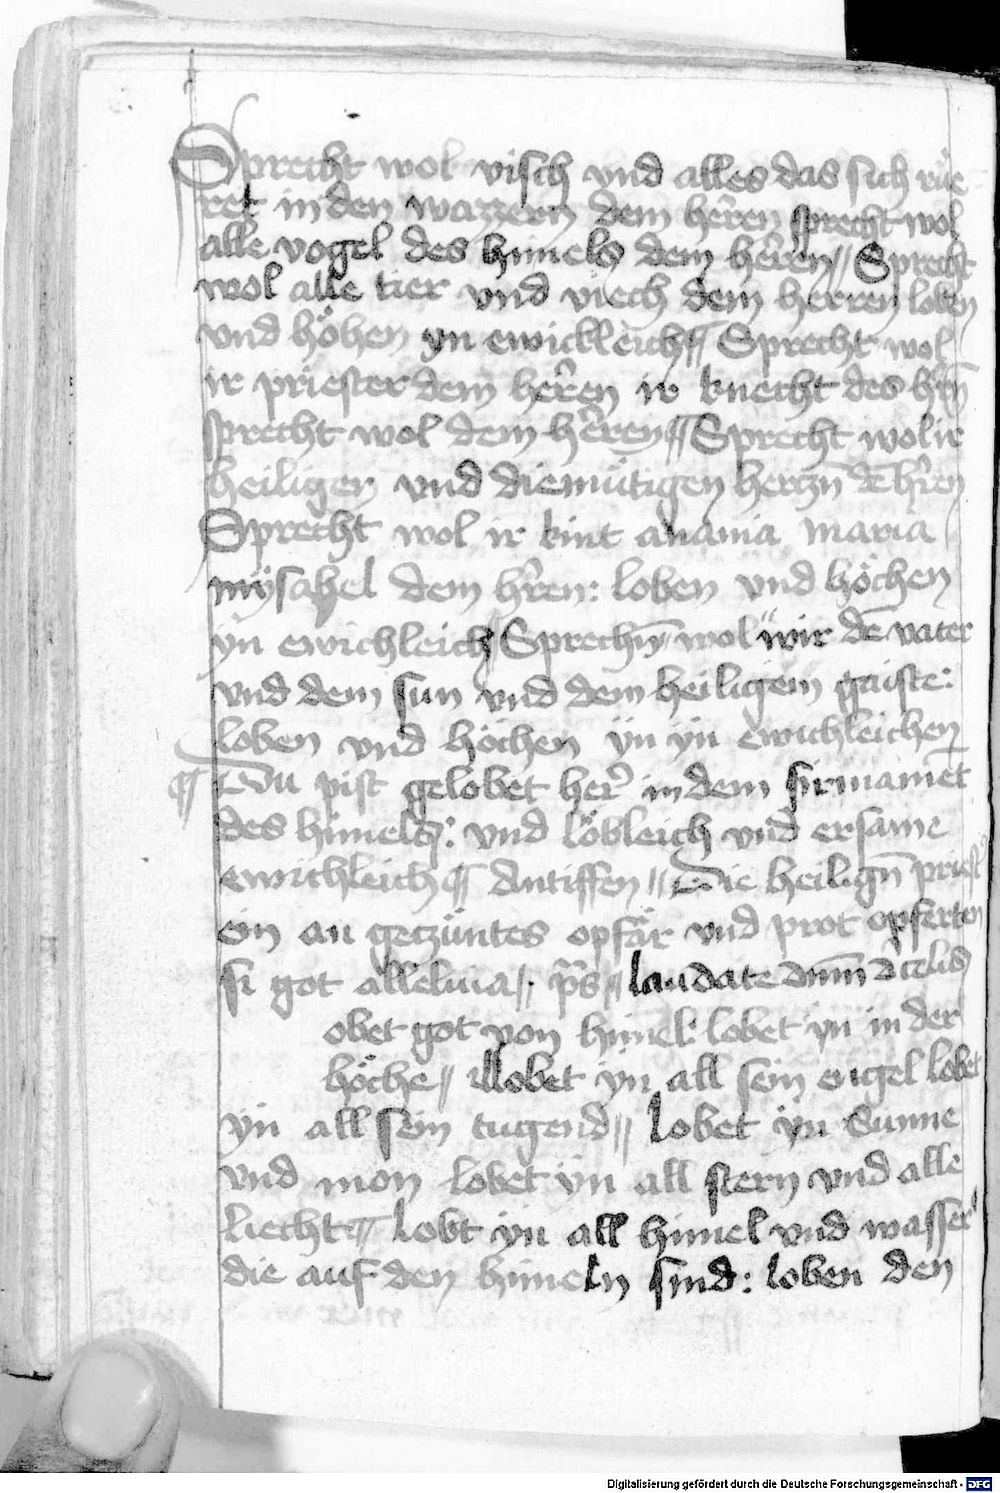 Sprecht wol visch vnd alles das sich rüe
ret in den wazzern dem herren sprecht wol
alle vogel des himels dem herren // Sprecht
wol alle tier vnd viech dem herren loben
vnd höhen yn ewickleich // Sprecht wol
ir priester dem herren ir knecht des hrn̄
sprecht wol dem herren // Sprecht wol ir
heiligen vnd diemütigen herczn̄ dē hr̄en
Sprecht wol ir kint anania maria
mÿsahel dem hr̄en : loben vnd höchen
yn ewichleich // Sprechn̄ wol wir dē vater
vnd dem sun vnd dem heiligem gaiste :
loben vnd höchen yn yn ewichleichen
¶ Du pist gelobet her̄ in dem firmamēt
des himels : vnd löbleich vnd ersame
ewichleich // Antiffen // Die heilign̄ priest̄
ein an geczüntes opfär vnd prot opferten
si got alleluia // p̄s // laudate dn̄m d̄ celis
obet got von himel : lobet yn in der
höche // llobet yn all sein engel lobet
yn all sein tugend // lobet yn Sunne
vnd mon lobet yn all stern vnd alle
liecht // Lobt yn all himel vnd wasser
die auf den himeln sind : loben den
Digitalisierung gefördert durch die Deutsche Forschungsgemeinschaft - DFG